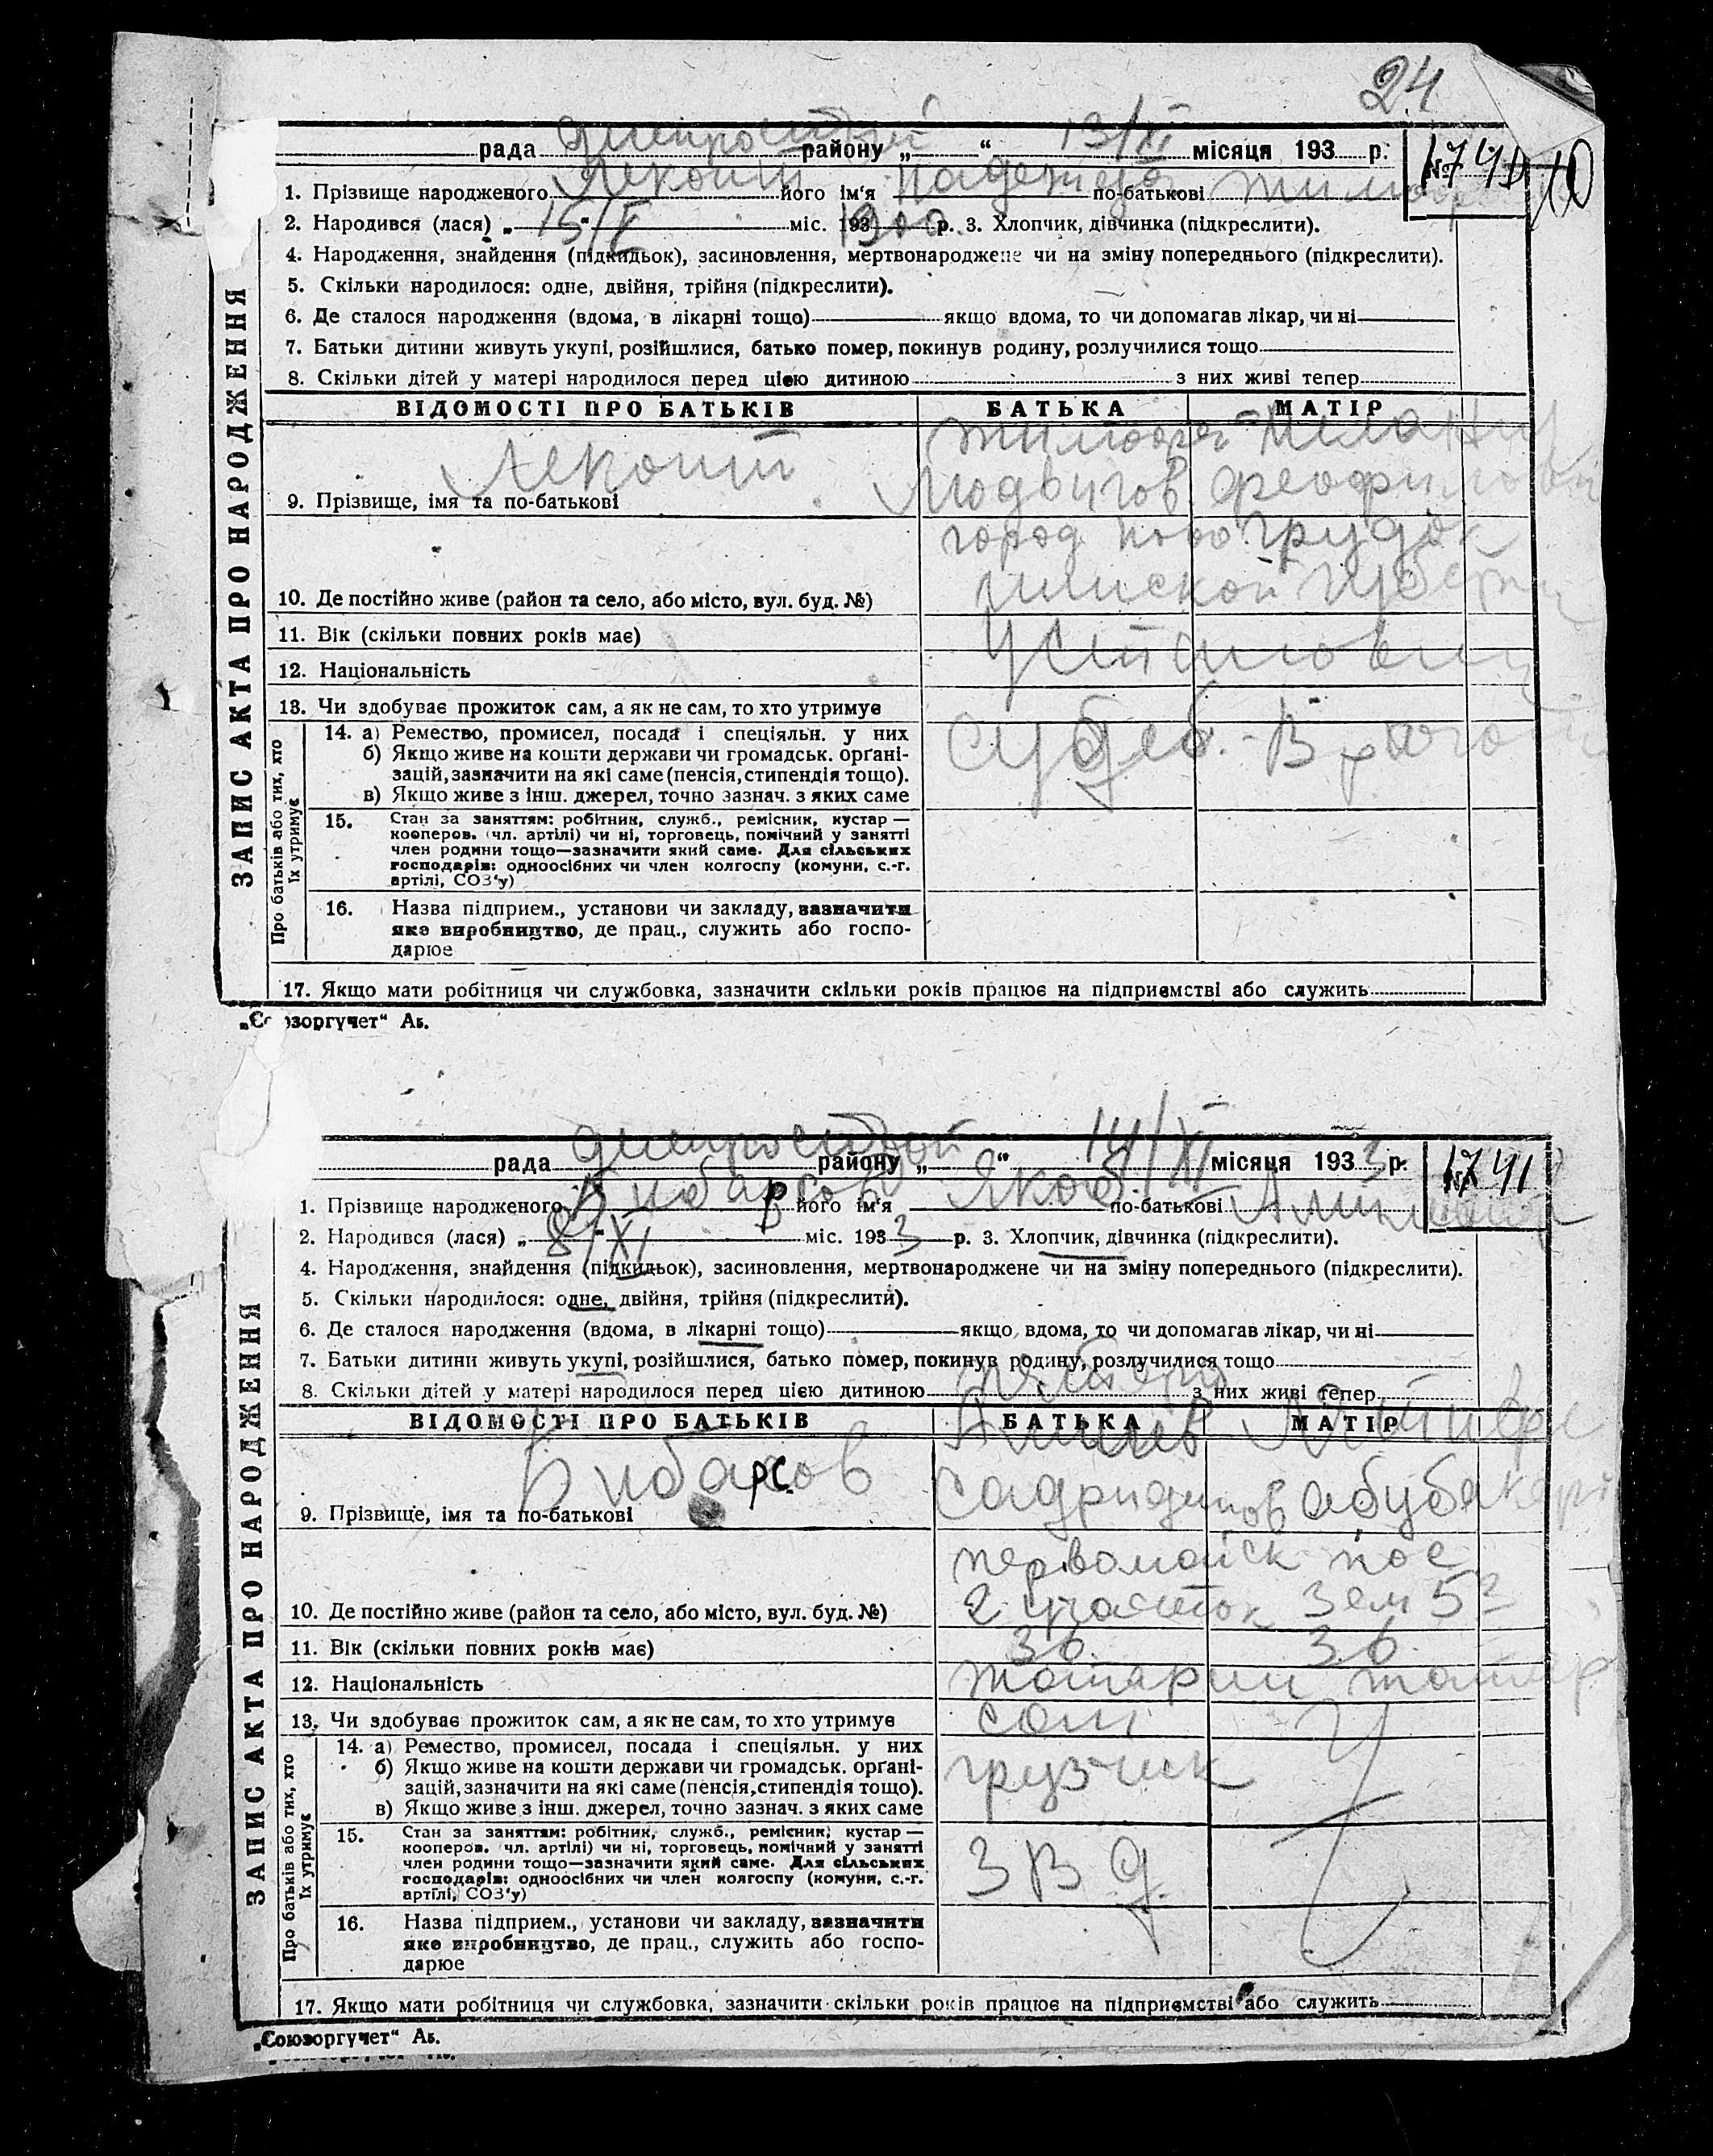 24
Днепрострой 13/XI
рада районy „ “ місяця 193 р. № 1740
1. Прізвище народженого Леконт його ім‘я Надежда по-батькові
2. Народився (лася) „ 15/X міс. 1900 р. 3. Хлопчик, дівчинка (підкреслити).
4. Народження, знайдення (підкидьок), засиновлення, мертвонароджене чи на зміну попереднього (підкреслити).
5. Скільки народилося: одне, двійня, трійня (підкреслити).
6. Де сталося народження (вдома, в лікарні тощо) якщо вдома, то чи допомагав лікар, чи ні
7. Батьки дитини живуть укупі, розійшлися, батько помер, покинув родину, розлучилися тощо
8. Скільки дітей у матері народилося перед цією дитиною з них живі тепер
ЗАПИС АКТА ПРО НАРОДЖЕННЯ
ВІДОМОСТІ ПРО БАТЬКІВ БАТЬКА МАТІР
Леконт
Людвигов Феофиловн
9. Прізвище, імя та по-батькові
город Новогрудок
10. Де постійно живе (район та село, або місто, вул. буд. №) Минской губерн
11. Вік (скільки повних років має) Установлен
12. Національність
13. Чи здобуває прожиток сам, а як не сам, то хто утримує
Про батьків або тих, хто їх утримує
14. а) Ремество, промисел, посада і спеціяльн. у них
б) Якщо живе на кошти держави чи громадськ. орґані-
зацій, зазначити на які саме (пенсія, стипендія тощо).
в) Якщо живе з інш. джерел, точно зазнач. з яких саме
15. Стан за заняттям: робітник, служб., ремісник, кустар —
кооперов. (чл. артілі) чи ні, торговець, помічний у занятті
член родини тощо—зазначити який саме. Для сільських
господарів: одноосібних чи член колгоспу (комуни, с.-г.
артілі, СОЗ‘у)
16. Назва підприєм., установи чи закладу, зазначити
яке виробництво, де прац., служить або госпо-
дарює
17. Якщо мати робітниця чи службовка, зазначити скільки років працює на підприємстві або служить
„Союзоргучет“ Аб.
Днепрострой 14/XI
рада району „ “ місяця 1933 р. № 1741
1. Прізвище народженого Бибарсов його ім‘я Якоб по-батькові
2. Народився (лася) „ 8/XI міс. 1933 р. 3. Хлопчик, дівчинка (підкреслити).
4. Народження, знайдення (підкидьок), засиновлення, мертвонароджене чи на зміну попереднього (підкреслити).
5. Скільки народилося: одне, двійня, трійня (підкреслити).
6. Де сталося народження (вдома, в лікарні тощо) якщо вдома, то чи допомагав лікар, чи ні
7. Батьки дитини живуть укупі, розійшлися, батько помер, покинув родину, розлучилися тощо
8. Скільки дітей у матері народилося перед цією дитиною з них живі тепер
ЗАПИС АКТА ПРО НАРОДЖЕННЯ
ВІДОМОСТІ ПРО БАТЬКІВ БАТЬКА МАТІР
Бибарсов Садридинов Абубакер
9. Прізвище, імя та по-батькові
Первомайск пос
10. Де постійно живе (район та село, або місто, вул. буд. №) 2 участок зем 52
11. Вік (скільки повних років має) 36 36
12. Національність татарин татар
13. Чи здобуває прожиток сам, а як не сам, то хто утримує сам
Про батьків або тих, хто їх утримує
14. а) Ремество, промисел, посада і спеціяльн. у них
б) Якщо живе на кошти держави чи громадськ. орґані- грузчик
зацій, зазначити на які саме (пенсія, стипендія тощо).
в) Якщо живе з інш. джерел, точно зазнач. з яких саме
15. Стан за заняттям: робітник, служб., ремісник, кустар —
кооперов. (чл. артілі) чи ні, торговець, помічний у занятті
член родини тощо—зазначити який саме. Для сільських
господарів: одноосібних чи член колгоспу (комуни, с.-г.
артілі, СОЗ‘у)
16. Назва підприєм., установи чи закладу, зазначити
яке виробництво, де прац., служить або госпо-
дарює
17. Якщо мати робітниця чи службовка, зазначити скільки років працює на підприємстві або служить
„Союзоргучет“ Аб.